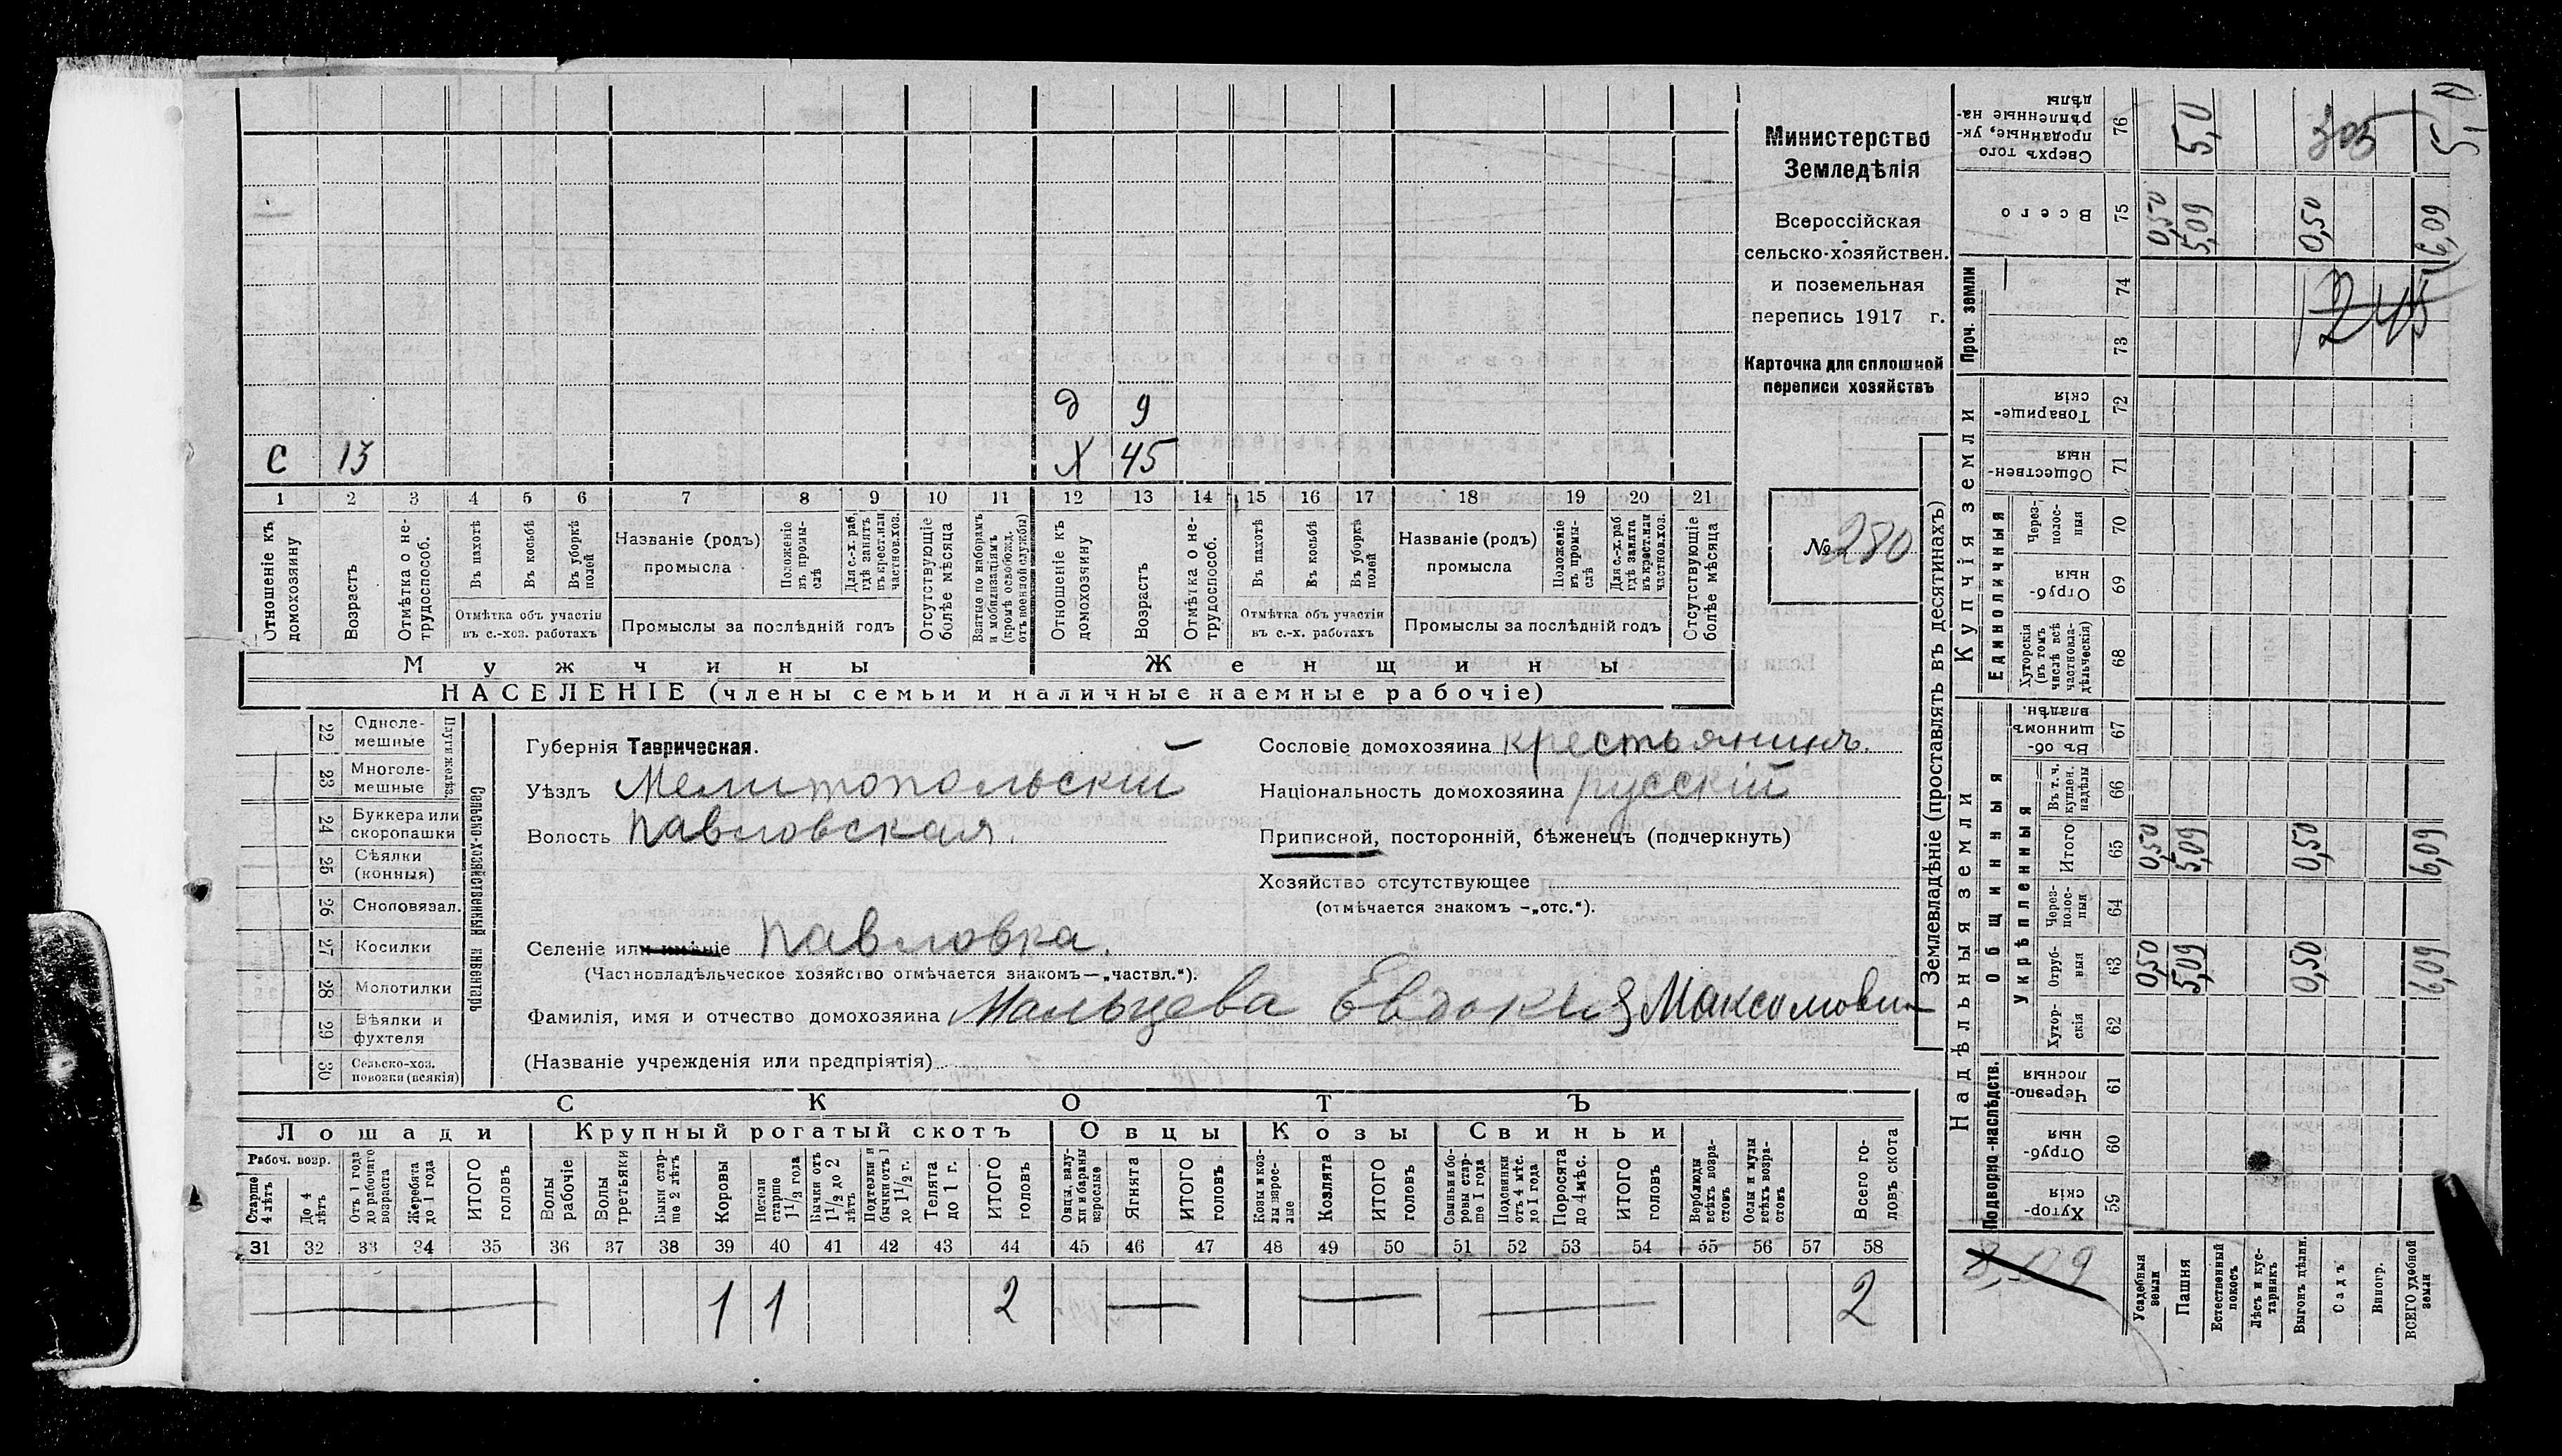 д 9
С 13 Х 45
1 2 3 4 5 6 7 8 9 10 11 12 13 14 15 16 17 18 19 20 21
Отношеніе къ домохозяину
Возрастъ
Отмѣтка о не-трудоспособ.
Въ пахотѣ
Въ косьбѣ
Въ уборкѣ полей
Отмѣтка объ участіи
въ с.-хоз. работахъ
Названіе (родъ)
промысла
Положеніе въ промы-слѣ
Для с.-х. раб. гдѣ занятъ въ крест. или частнов. хоз.
Промыслы за послѣдній годъ
Отсутствующіе болѣе мѣсяца
Взятые по наборамъ и мобилизаціямъ (кромѣ освобожд. отъ военной службы)
Отношеніе къ домохозяину
Возрастъ
Отмѣтка о не-трудоспособ.
Въ пахотѣ
Въ косьбѣ
Въ уборкѣ полей
Отмѣтка объ участіи
въ с.-х. работахъ
Названіе (родъ)
промысла
Положеніе въ промы-слѣ
Для с.-х. раб гдѣ занята въ крест. или частнов. хоз.
Промыслы за послѣдній годъ
Отсутствующіе болѣе мѣсяца
Мужчины Женщины
НАСЕЛЕНІЕ (члены семьи и наличные наемные рабочіе)
Министерство
Земледѣлія
Всероссійская
сельско-хозяйствен.
и поземельная
перепись 1917 г.
Карточка для сплошной
переписи хозяйствъ
№ 280
Сельско-хозяйственный инвентарь
Плуги желѣз.
22 Одноле-мешные
23 Многоле-мешные
24 Буккера или скоропашки
25 Сѣялки (конныя)
26 Сноповязал.
27 Косилки
28 Молотилки
29 Вѣялки и фухтеля
30 Сельско-хоз. повозки (всякія)
Губернія Таврическая.
Уѣздъ Мелитопольскій
Волость Павловская.
Селеніе или имѣніе Павловка.
(Частновладѣльческое хозяйство отмѣчается знакомъ—„частвл.“).
Фамилія, имя и отчество домохозяина Мальцева Евдокия Максимови
(Названіе учрежденія или предпріятія)
Сословіе домохозяина крестьянинъ.
Національность домохозяина русскій
Приписной, посторонній, бѣженецъ (подчеркнуть)
Хозяйство отсутствующее
(отмѣчается знакомъ —„отс.“).
СКОТЪ
Лошади Крупный рогатый скотъ Овцы Козы Свиньи
Рабоч. возр.
Старше 4 лѣтъ
До 4 лѣтъ
Отъ 1 года до рабочаго возраста
Жеребята до 1 года
ИТОГО головъ
Волы рабочіе
Волы третьяки
Быки стар-ше 2 лѣтъ
Коровы
Нетели старше 1 1/2 года
Бычки отъ 1 1/2 до 2 лѣтъ
Подтелки и бычки отъ 1 до 1 1/2 г.
Телята до 1 г.
ИТОГО головъ
Овцы, валу-хи и бараны взрослые
Ягнята
ИТОГО головъ
Козы и коз-лы взрос-лые
Козлята
ИТОГО головъ
Свиньи и бо-ровы стар-ше 1 года
Подсвинки отъ 4 мѣс. до 1 года
Поросята до 4 мѣс.
ИТОГО головъ
Верблюды всѣхъ возра-стовъ
Ослы и мулы всѣхъ возра-стовъ
Всего го-ловъ скота
31 32 33 34 35 36 37 38 39 40 41 42 43 44 45 46 47 48 49 50 51 52 53 54 55 56 57 58
1 1 2 2
Землевладѣніе (проставлять въ десятинахъ)
Надѣльныя земли Купчія земли Проч. земли
Подворно-наслѣдств. Общинныя Единоличныя
Укрѣпленныя
59 Хутор-скія
60 Отруб-ныя
61 Черезпо-лосныя
62 Хутор-скія
63 Отруб-ныя
64 Через-полос-ныя
65 Итого
66 Въ т. ч. куплен. надѣлы
67 Въ об-щинномъ владѣн.
68 Хуторскія (въ томъ числѣ всѣ частновла-дѣльческія)
69 Отруб-ныя
70 Через-полос-ныя
71 Обществен-ныя
72 Товарище-скія
73
74
75 Всего
76 Сверхъ того проданные, ук-рѣпленные на-дѣлы
Усадебныя земли 0,50 0,50 0,50
Пашня 5,09 5,09 5,09 5,0
Естественный покосъ
Лѣсъ и кус-тарникъ
Выгонъ цѣлин. 0,50 0,50 0,50
Садъ
Виногр.
ВСЕГО удобной земли 6,09 6,09 6,09 5,0